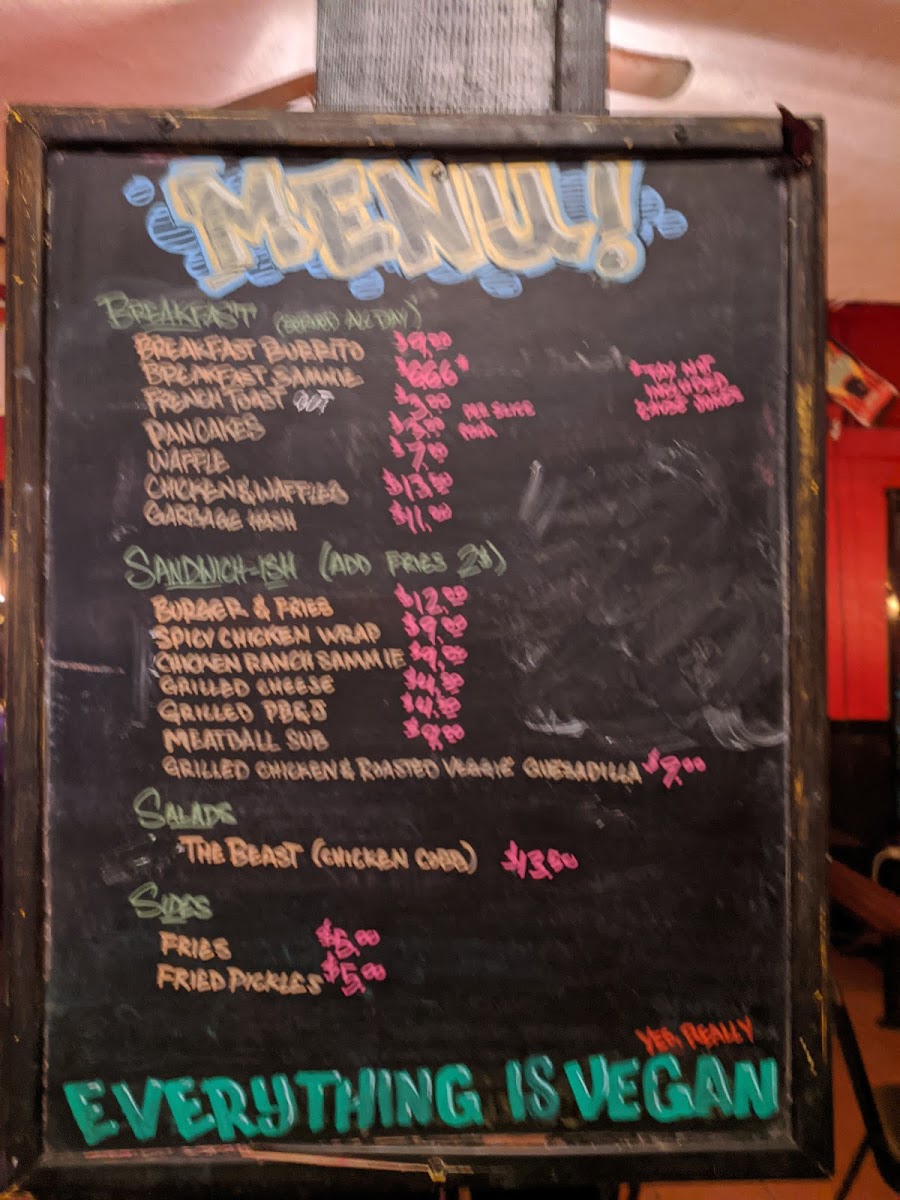 MENU!
BREAKFAST (SERVED ALL DAY)
BREAKFAST BURRITO $9.00
BREAKFAST SAMMIE $666*
FRENCH TOAST $3.00 PER SLICE
PANCAKES
WAFFLE $7.00
CHICKEN & WAFFLES $13.00
GARBAGE HASH $11.00
*TAX NOT
INCLUDED
SANDWICH-ISH (ADD FRIES 2$)
BURGER & FRIES $12.00
SPICY CHICKEN WRAP $9.00
CHICKEN RANCH SAMMIE $9.00
GRILLED CHEESE $4.00
GRILLED PB&J $4.00
MEATBALL SUB $9.00
GRILLED CHICKEN & ROASTED VEGGIE QUESADILLA $9.00
SALADS
THE BEAST (CHICKEN COBB) $13.00
SIDES
FRIES
FRIED PICKLES $5.00
YEP, REALLY
EVERYTHING IS VEGAN